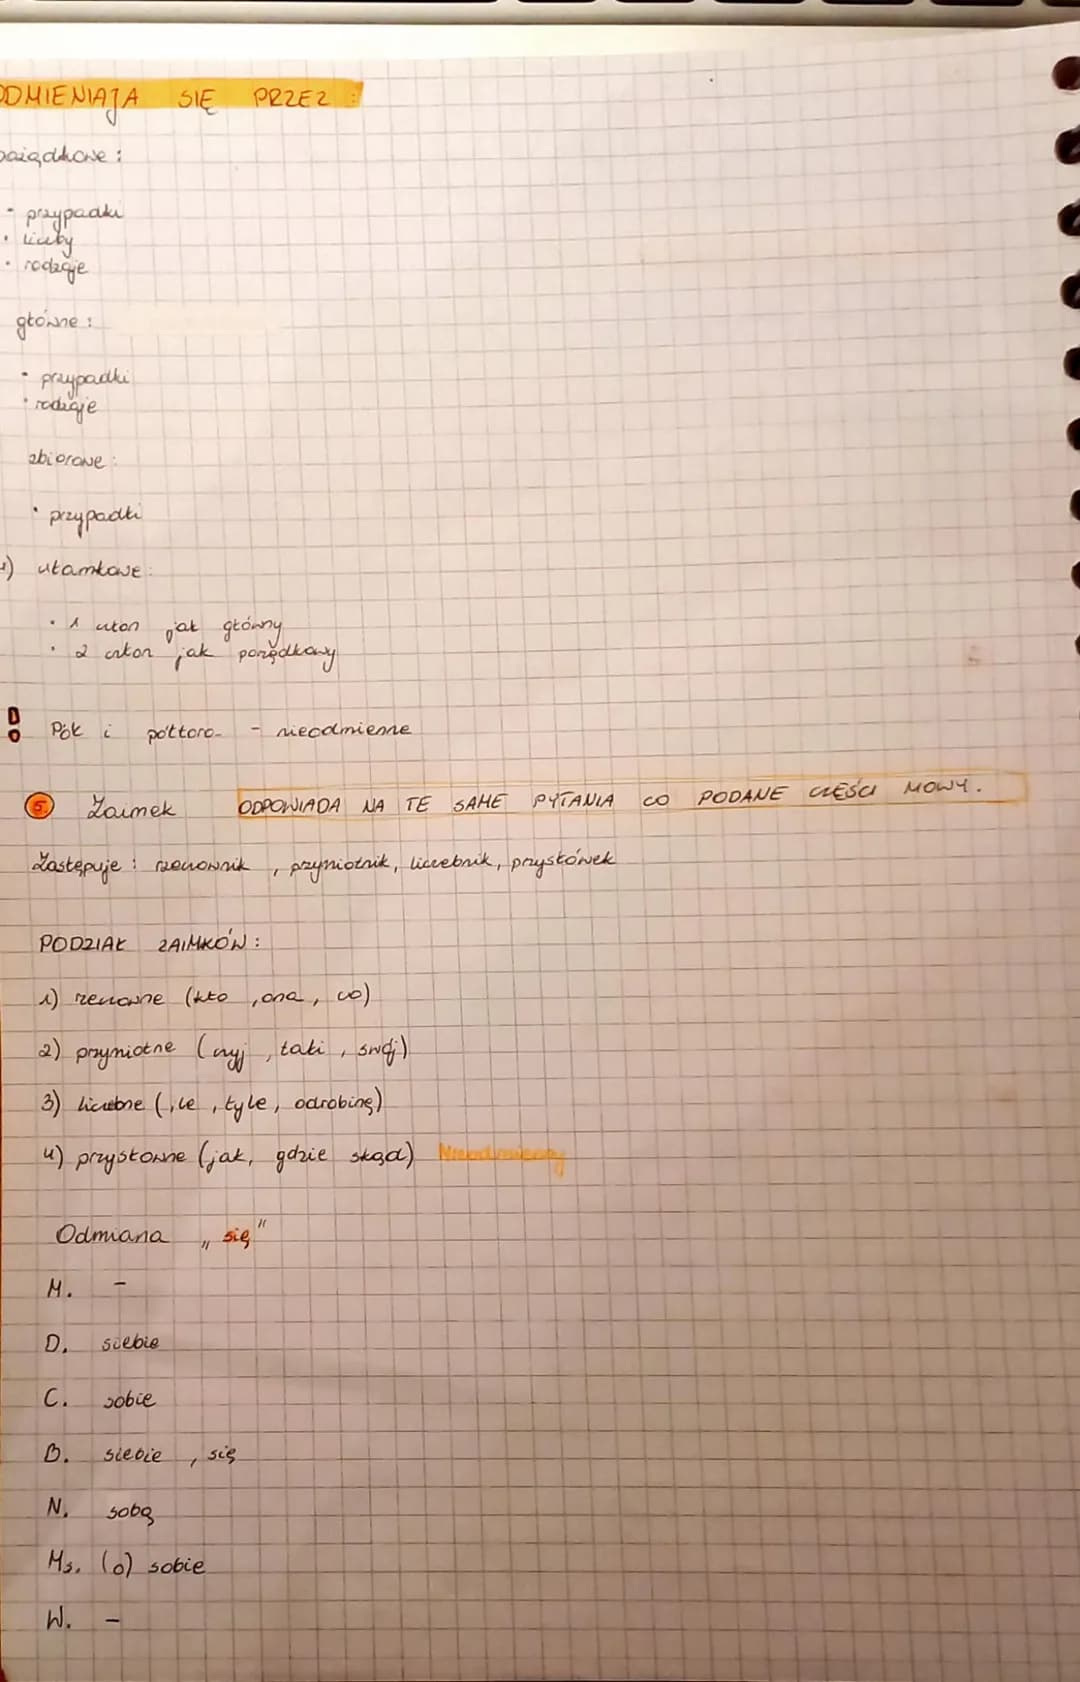 ODMIENIAJĄ SIĘ PRZEZ :
porządkowe :
- przypadki
• liczby
• rodzaje
główne :
• przypadki
• rodzaje
zbiorowe :
• przypadki
4) ułamkowe :
• 1 człon jak główny
• 2 człon jak porządkowy
! Pół i półtora - nieodmienne
5 Zaimek ODPOWIADA NA TE SAME PYTANIA CO PODANE CZĘŚCI MOWY.
Zastępuje : rzeczownik , przymiotnik, liczebnik, przysłówek
PODZIAŁ ZAIMKÓW :
1) rzeczowne (kto , ona , co)
2) przymiotne (czyj , taki , swój)
3) liczebne (ile , tyle, odrobinę)
4) przysłowne (jak, gdzie skąd) Nieodmienny
Odmiana „ się "
M. -
D. siebie
C. sobie
B. siebie , się
N. sobą
Ms. (o) sobie
W. -